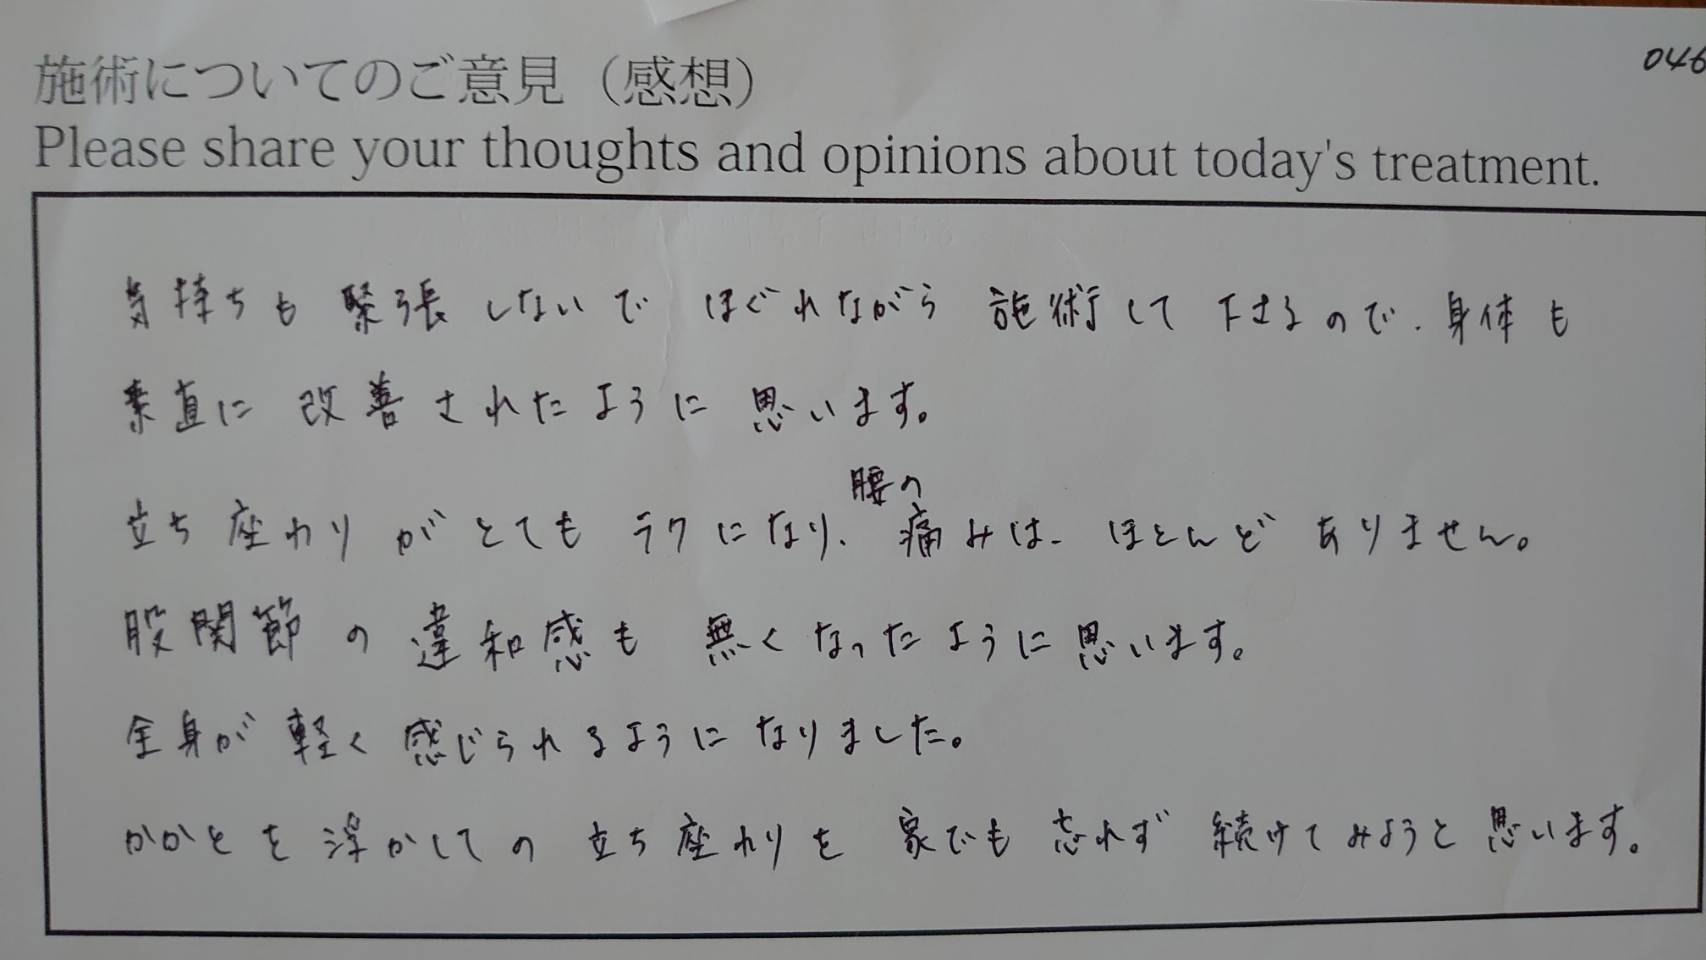 046
施術についてのご意見（感想）
Please share your thoughts and opinions about today's treatment.
気持ちも緊張しないでほぐれながら施術して下さるので、身体も
素直に改善されたように思います。
立ち座わりがとてもラクになり、腰の痛みは、ほとんどありません。
股関節の違和感も無くなったように思います。
全身が軽く感じられるようになりました。
かかとを浮かしての立ち座わりを家でも忘れず続けてみようと思います。